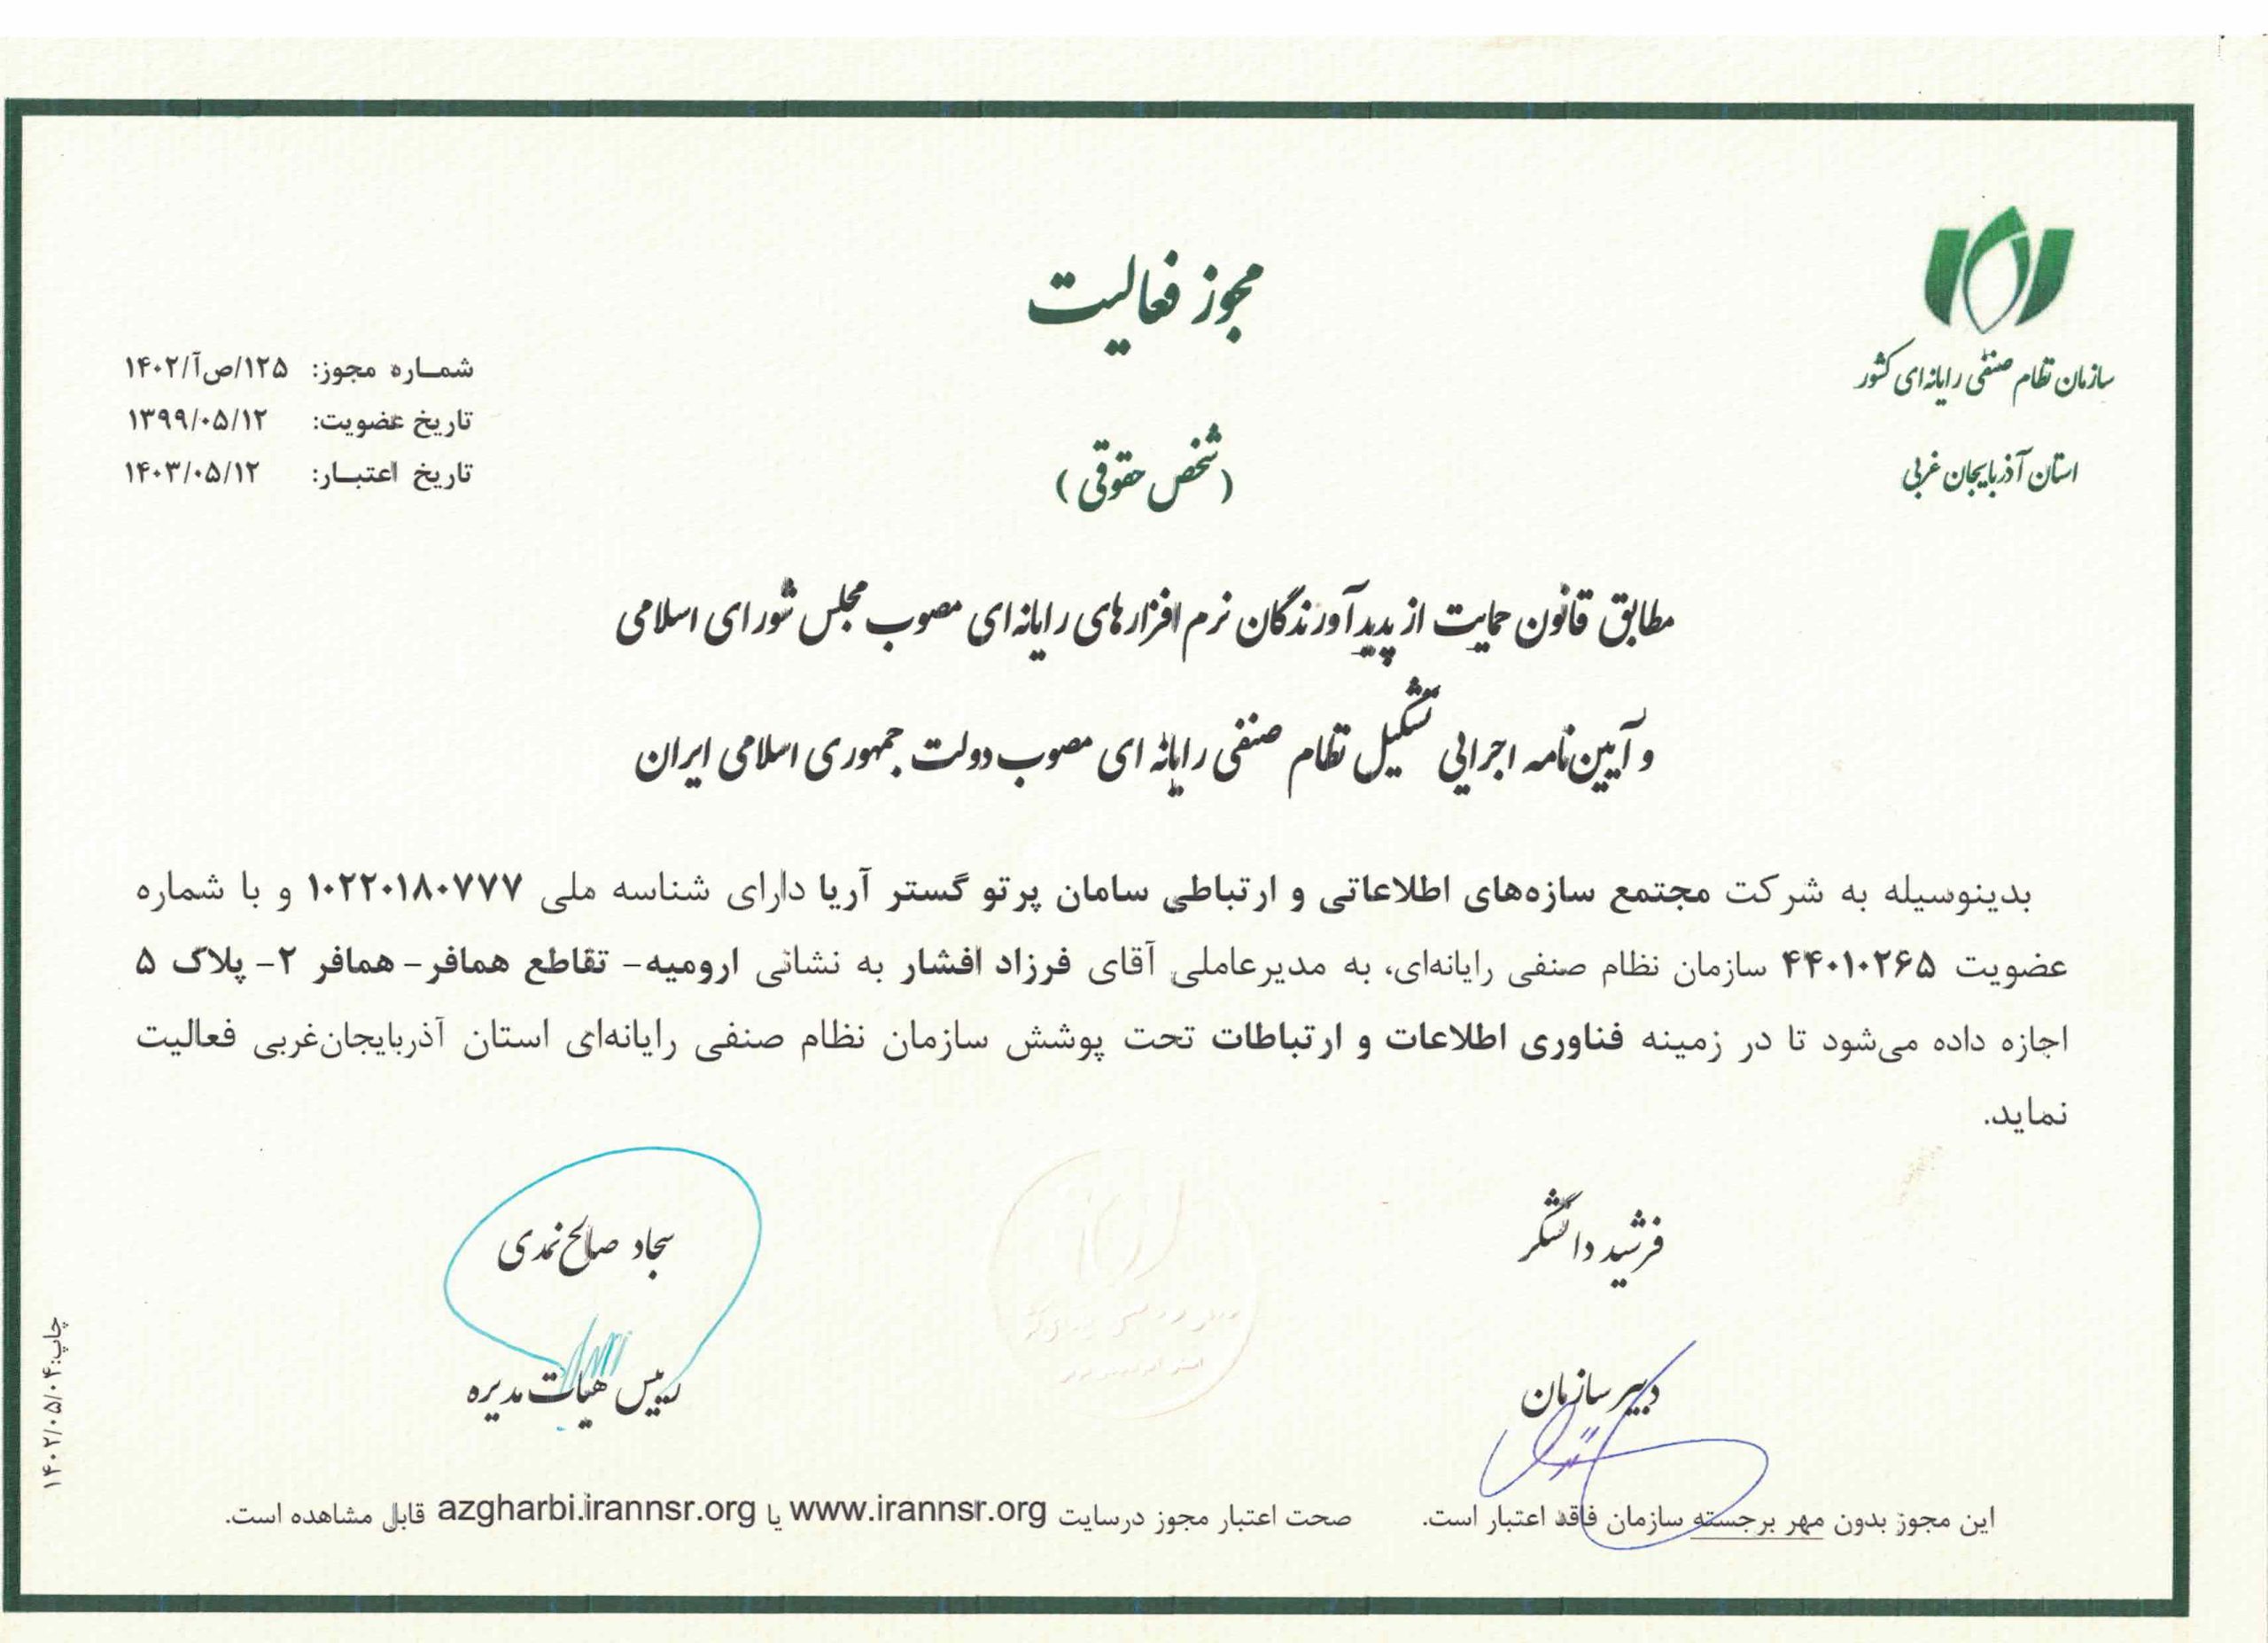 سازمان نظام صنفی رایانه‌ای کشور
استان آذربایجان غربی
مجوز فعالیت
(شخص حقوقی)
شماره مجوز: ۱۲۵/ص‌آ/۱۴۰۲
تاریخ عضویت: ۱۳۹۹/۰۵/۱۲
تاریخ اعتبار: ۱۴۰۳/۰۵/۱۲
مطابق قانون حمایت از پدیدآورندگان نرم افزارهای رایانه‌ای مصوب مجلس شورای اسلامی
و آیین‌نامه اجرایی تشکیل نظام صنفی رایانه ای مصوب دولت جمهوری اسلامی ایران
بدینوسیله به شرکت مجتمع سازه‌های اطلاعاتی و ارتباطی سامان پرتو گستر آریا دارای شناسه ملی ۱۰۲۲۰۱۸۰۷۷۷ و با شماره
عضویت ۴۴۰۱۰۲۶۵ سازمان نظام صنفی رایانه‌ای، به مدیرعاملی آقای فرزاد افشار به نشانی ارومیه- تقاطع همافر- همافر ۲- پلاک ۵
اجازه داده می‌شود تا در زمینه فناوری اطلاعات و ارتباطات تحت پوشش سازمان نظام صنفی رایانه‌ای استان آذربایجان‌غربی فعالیت
نماید.
فرشید دانشگر
دبیر سازمان
سجاد صالح نمدی
رییس هیات مدیره
این مجوز بدون مهر برجسته سازمان فاقد اعتبار است.
صحت اعتبار مجوز درسایت www.irannsr.org یا azgharbi.irannsr.org قابل مشاهده است.
چاپ:۱۴۰۲/۰۵/۰۴